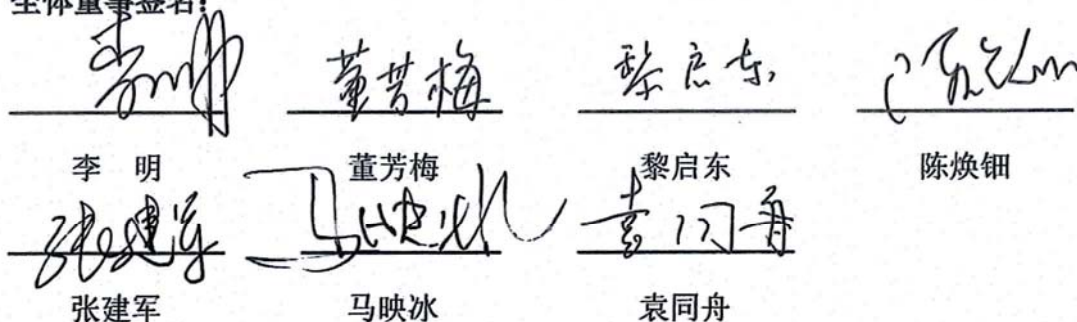 全体董事签名:
李明 董芳梅 黎启东
李 明 董芳梅 黎启东 陈焕钿
张建军 马映冰 袁同舟
张建军 马映冰 袁同舟